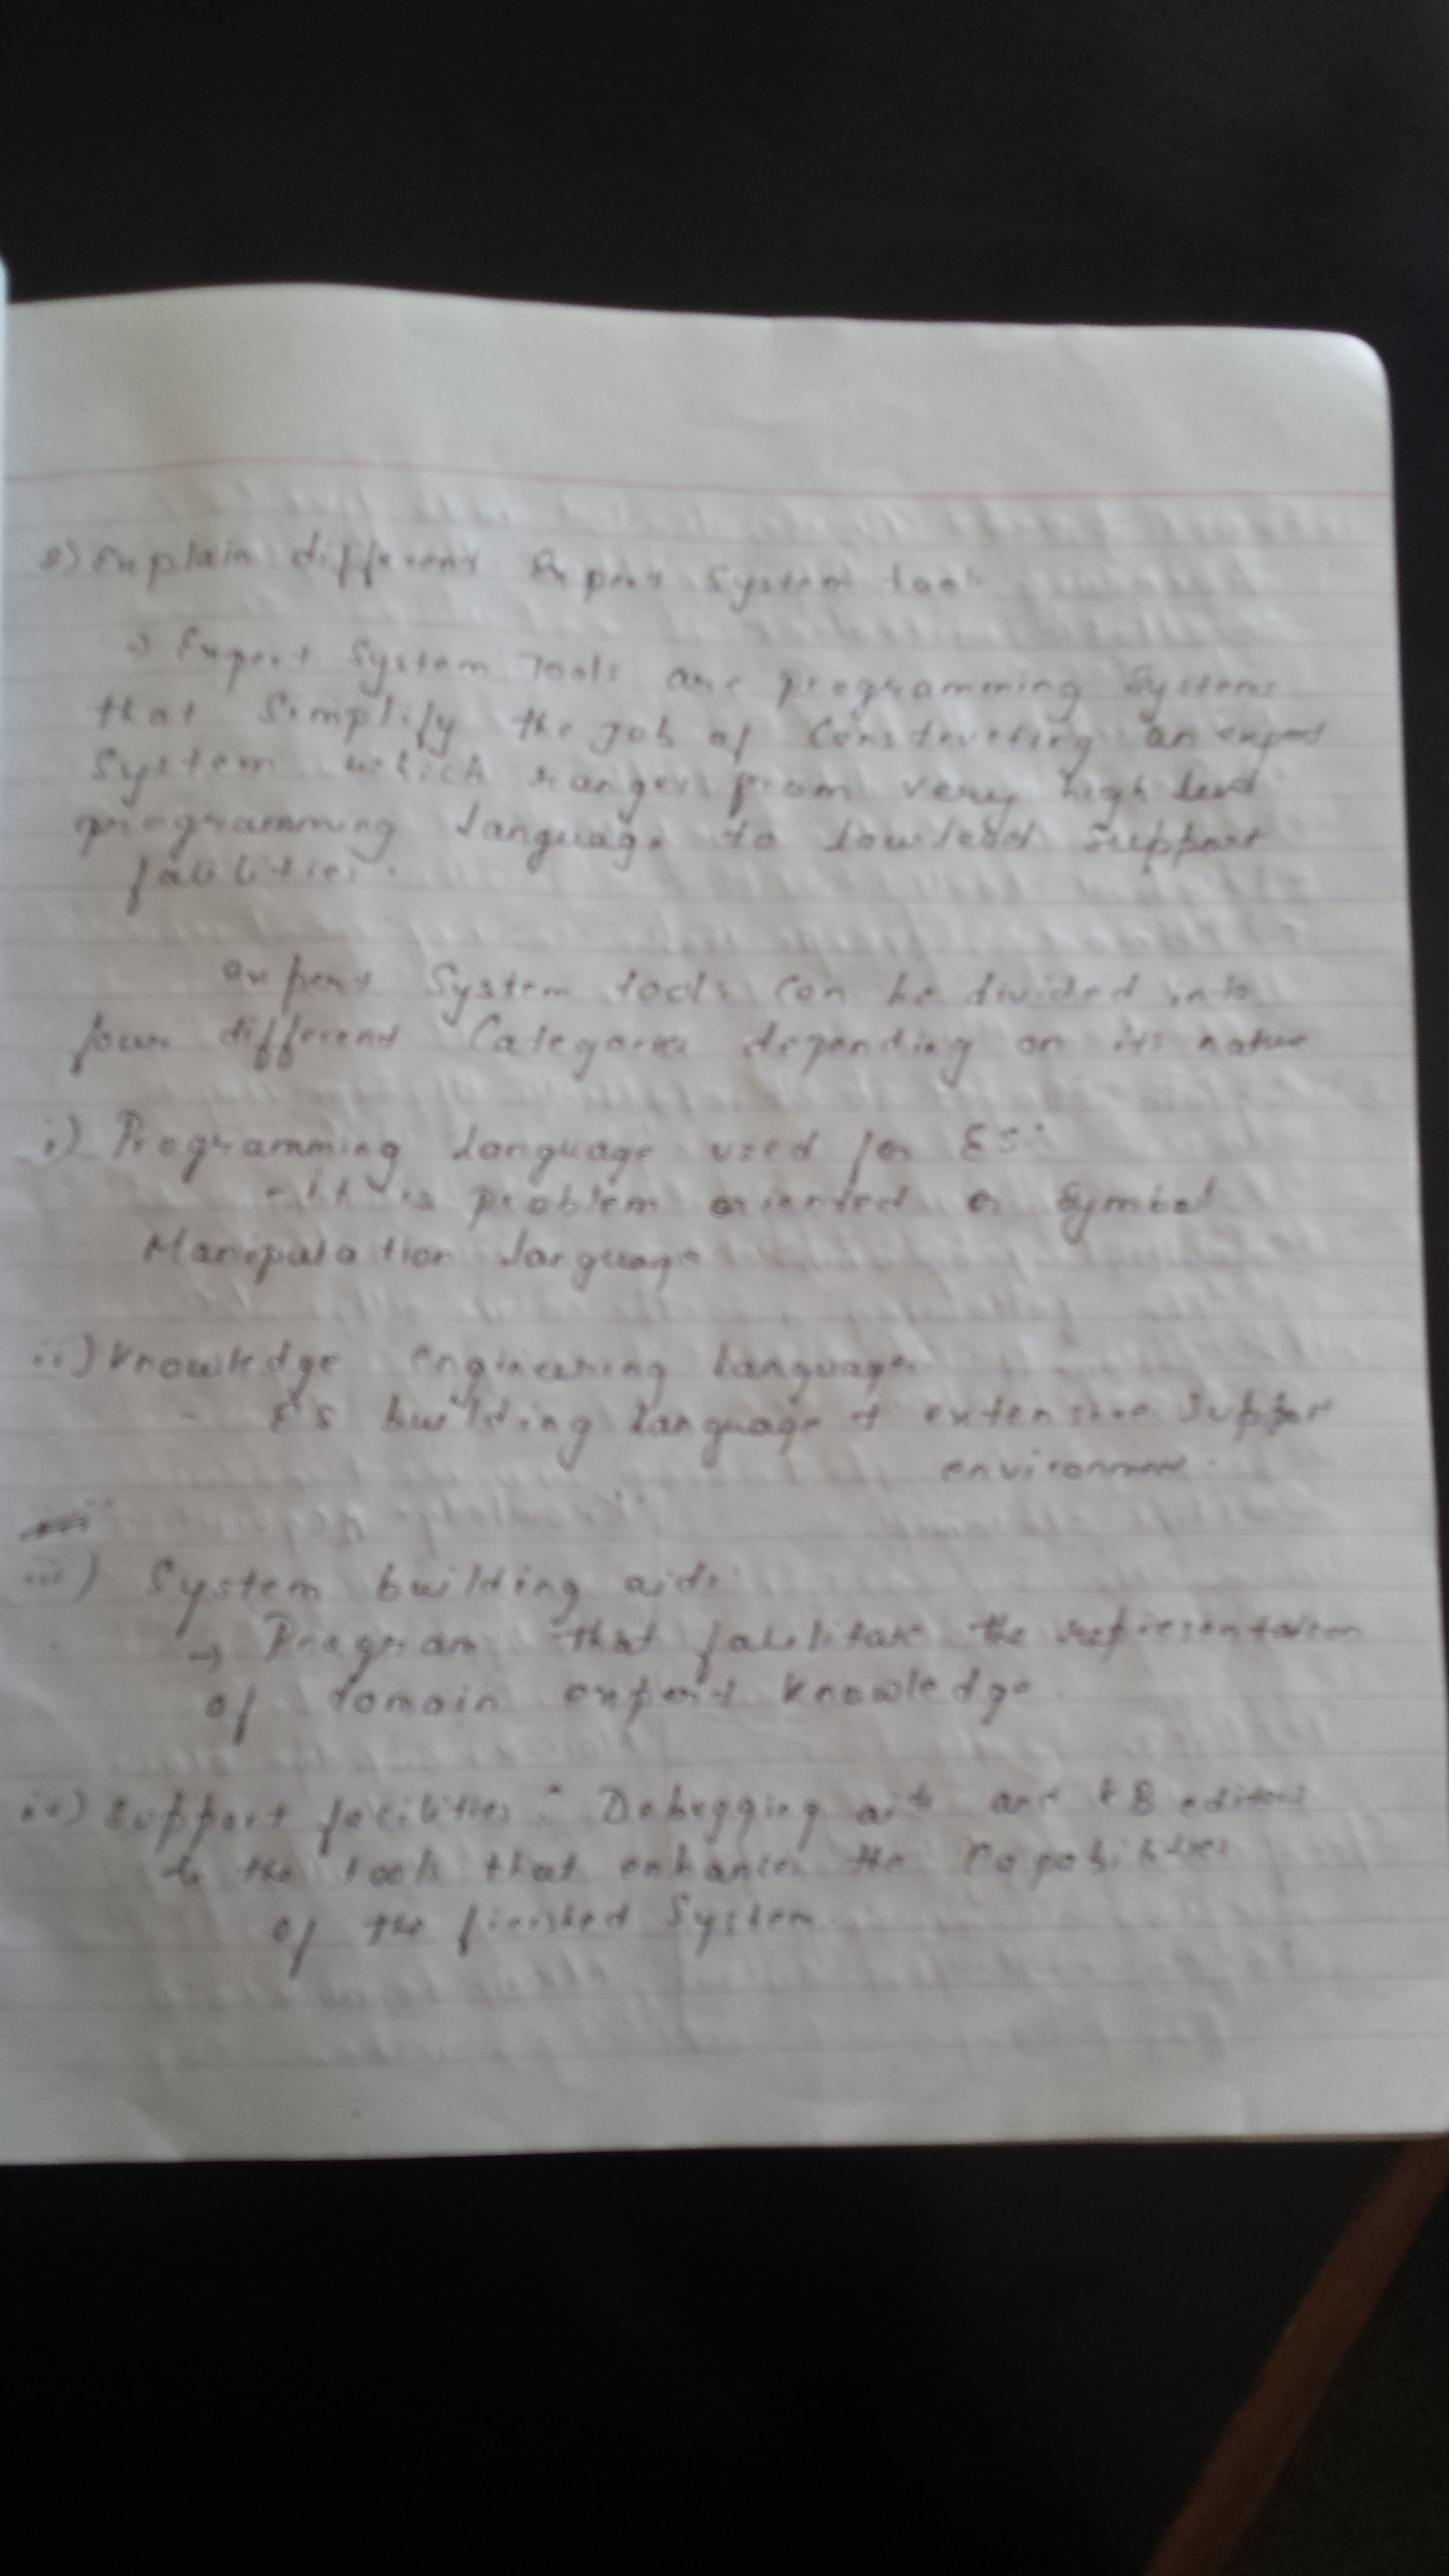 8) Explain different Expert System tools
→ Expert System Tools are programming Systems
that Simplify the Job of Constructing an expert
System which ranges from very high level
programming language to low level Support
falilities.
expert System tools can be divided into
four different Categories depending on its nature
i) Programming language used for ES:
- It is problem oriented or Symbol
Manipulation language
ii) Knowledge engineering language
- ES building language + extensive Support
environment.
iii) System building aids:
→ Program that falilitate the representation
of domain expert knowledge.
iv) Support facilities : Debugging aids and KB editors
the tools that enhances the Capabilities
of the finished System.